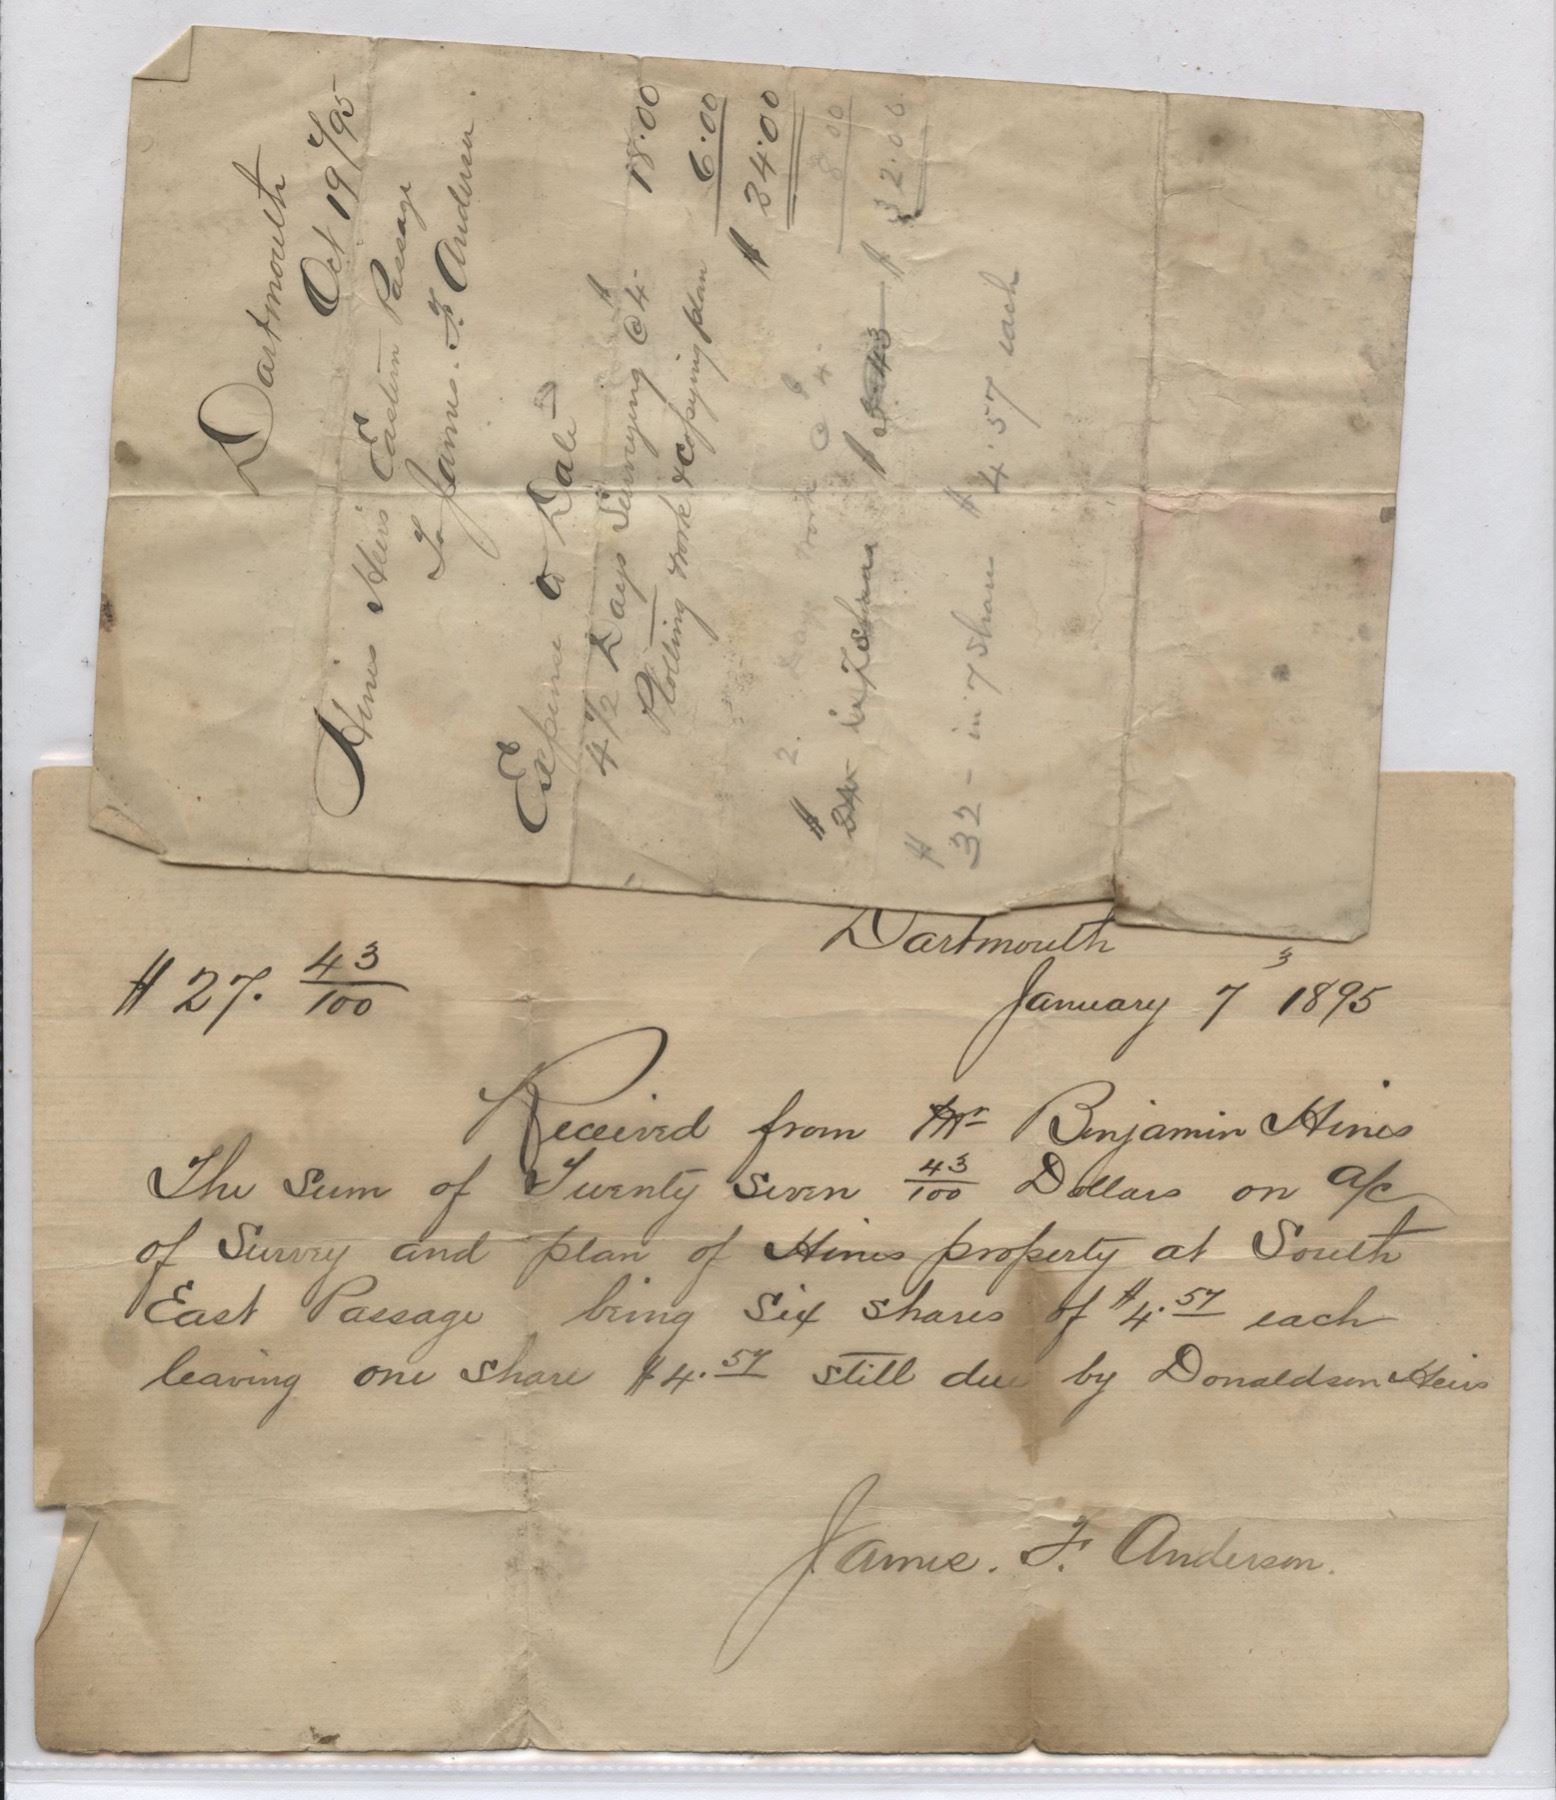 Dartmouth
Oct 19th/95
Hines Heirs Eastern Passage
To James. F. Anderson.
Expense to Date
4 1/2 Days Surveying @ $4- 18.00
Plotting work & copying plan 6.00
$ 24.00
2. Days work @ $4. 8.00
$ 32.00
$24 in 7 shares $ 3.43
$32 - in 7 shares $4.57 each
Dartmouth
$ 27. 43/100 January 7 3 1895
Received from Mr Benjamin Hines
The Sum of Twenty Seven 43/100 Dollars on a/c
of Survey and plan of Hines property at South
East Passage being Six Shares of $4.57 each
leaving one Share $4.57 still due by Donaldson Heirs
James. F. Anderson.